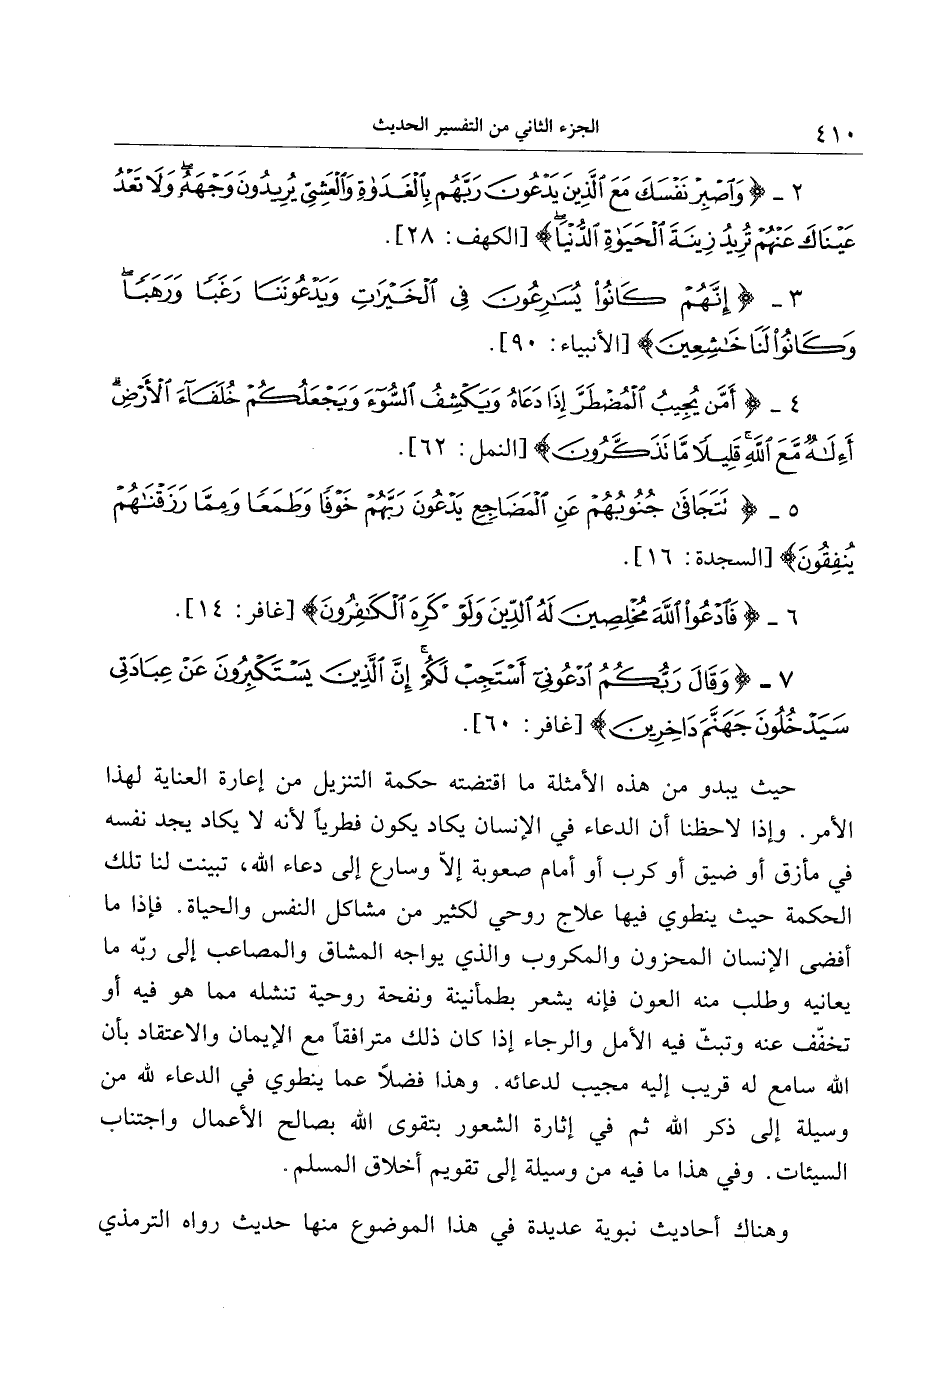 ٤١٠ الجزء الثاني من التفسير الحديث
٢ ـ ﴿ وَٱصْبِرْ نَفْسَكَ مَعَ ٱلَّذِينَ يَدْعُونَ رَبَّهُم بِٱلْغَدَوٰةِ وَٱلْعَشِيِّ يُرِيدُونَ وَجْهَهُۥۖ وَلَا تَعْدُ
عَيْنَاكَ عَنْهُمْ تُرِيدُ زِينَةَ ٱلْحَيَوٰةِ ٱلدُّنْيَاۖ﴾ [الكهف: ٢٨].
٣ ـ ﴿ إِنَّهُمْ كَانُوا۟ يُسَٰرِعُونَ فِى ٱلْخَيْرَٰتِ وَيَدْعُونَنَا رَغَبًا وَرَهَبًاۖ
وَكَانُوا۟ لَنَا خَٰشِعِينَ﴾ [الأنبياء: ٩٠].
٤ ـ ﴿ أَمَّن يُجِيبُ ٱلْمُضْطَرَّ إِذَا دَعَاهُ وَيَكْشِفُ ٱلسُّوٓءَ وَيَجْعَلُكُمْ خُلَفَآءَ ٱلْأَرْضِۗ
أَءِلَٰهٌ مَّعَ ٱللَّهِۚ قَلِيلًا مَّا تَذَكَّرُونَ﴾ [النمل: ٦٢].
٥ ـ ﴿ تَتَجَافَىٰ جُنُوبُهُمْ عَنِ ٱلْمَضَاجِعِ يَدْعُونَ رَبَّهُمْ خَوْفًا وَطَمَعًا وَمِمَّا رَزَقْنَٰهُمْ
يُنفِقُونَ﴾ [السجدة: ١٦].
٦ ـ ﴿ فَٱدْعُوا۟ ٱللَّهَ مُخْلِصِينَ لَهُ ٱلدِّينَ وَلَوْ كَرِهَ ٱلْكَٰفِرُونَ﴾ [غافر: ١٤].
٧ ـ ﴿ وَقَالَ رَبُّكُمُ ٱدْعُونِىٓ أَسْتَجِبْ لَكُمْۚ إِنَّ ٱلَّذِينَ يَسْتَكْبِرُونَ عَنْ عِبَادَتِى
سَيَدْخُلُونَ جَهَنَّمَ دَاخِرِينَ﴾ [غافر: ٦٠].
حيث يبدو من هذه الأمثلة ما اقتضته حكمة التنزيل من إعارة العناية لهذا
الأمر. وإذا لاحظنا أن الدعاء في الإنسان يكاد يكون فطرياً لأنه لا يكاد يجد نفسه
في مأزق أو ضيق أو كرب أو أمام صعوبة إلاّ وسارع إلى دعاء الله، تبينت لنا تلك
الحكمة حيث ينطوي فيها علاج روحي لكثير من مشاكل النفس والحياة. فإذا ما
أفضى الإنسان المحزون والمكروب والذي يواجه المشاق والمصاعب إلى ربّه ما
يعانيه وطلب منه العون فإنه يشعر بطمأنينة ونفحة روحية تنشله مما هو فيه أو
تخفّف عنه وتبثّ فيه الأمل والرجاء إذا كان ذلك مترافقاً مع الإيمان والاعتقاد بأن
الله سامع له قريب إليه مجيب لدعائه. وهذا فضلاً عما ينطوي في الدعاء لله من
وسيلة إلى ذكر الله ثم في إثارة الشعور بتقوى الله بصالح الأعمال واجتناب
السيئات. وفي هذا ما فيه من وسيلة إلى تقويم أخلاق المسلم.
وهناك أحاديث نبوية عديدة في هذا الموضوع منها حديث رواه الترمذي